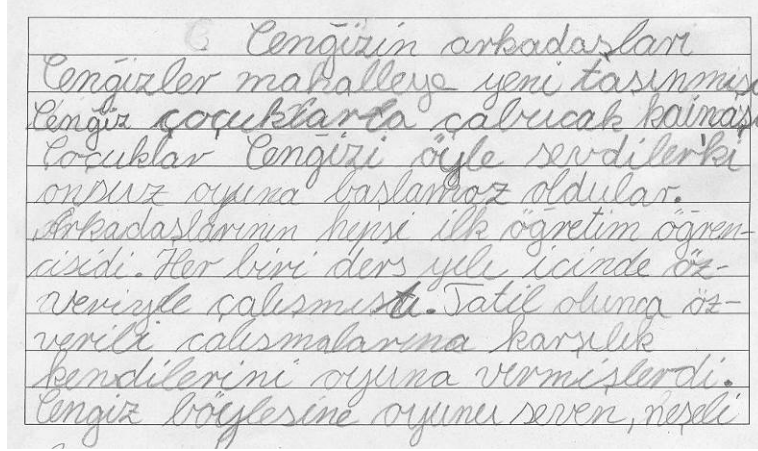 Cenğizin arkadaşları
Cenğizler mahalleye yeni taşınmış
Cenğiz çoçuklarla çabucak kainaş
Çoçuklar Cenğizi öyle sevdiler'ki
onsuz oyuna başlamaz oldular.
Arkadaşlarının hepsi ilk öğretim öğren-
cisidi. Her biri ders yılı içinde öz-
veriyle çalışmıştı. Tatil olunca öz-
verili çalışmalarına karşılık
kendilerini oyuna vermişlerdi.
Cengiz böylesine oyunu seven, neşeli